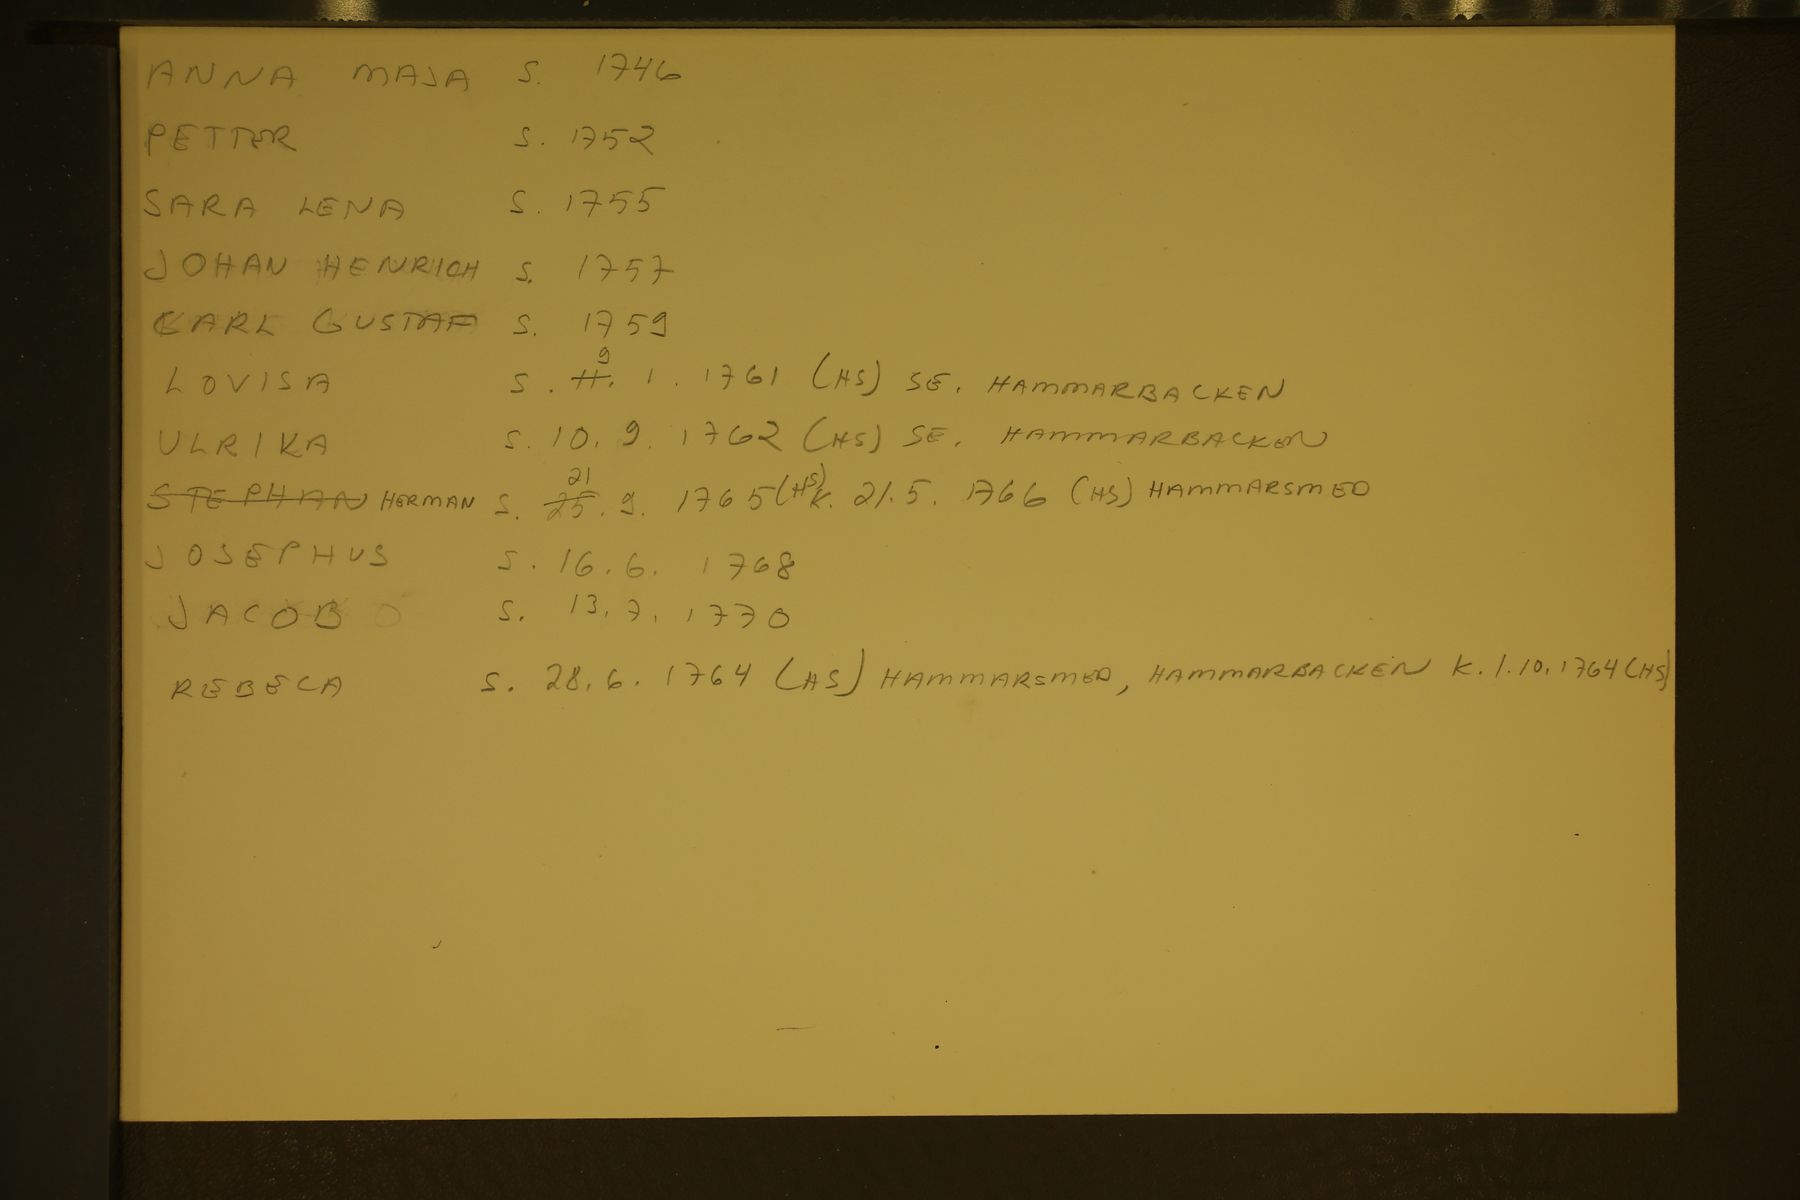 ANNA MAJA S. 1746
PETTER S. 1752
SARA LENA S. 1755
JOHAN HENRICH S. 1757
CARL GUSTAF S. 1759
LOVISA S. 11. 9 1. 1761 (HS) SE. HAMMARBACKEN
ULRIKA S. 10. 9. 1762 (HS) SE. HAMMARBACKEN
STEPHAN HERMAN S. 25. 21 9. 1765 (HS) K. 21.5. 1766 (HS) HAMMARSMED
JOSEPHUS S. 16.6. 1768
JACOB S. 13.7. 1770
REBECA S. 28.6. 1764 (HS) HAMMARSMED, HAMMARBACKEN K. 1.10.1764 (HS)